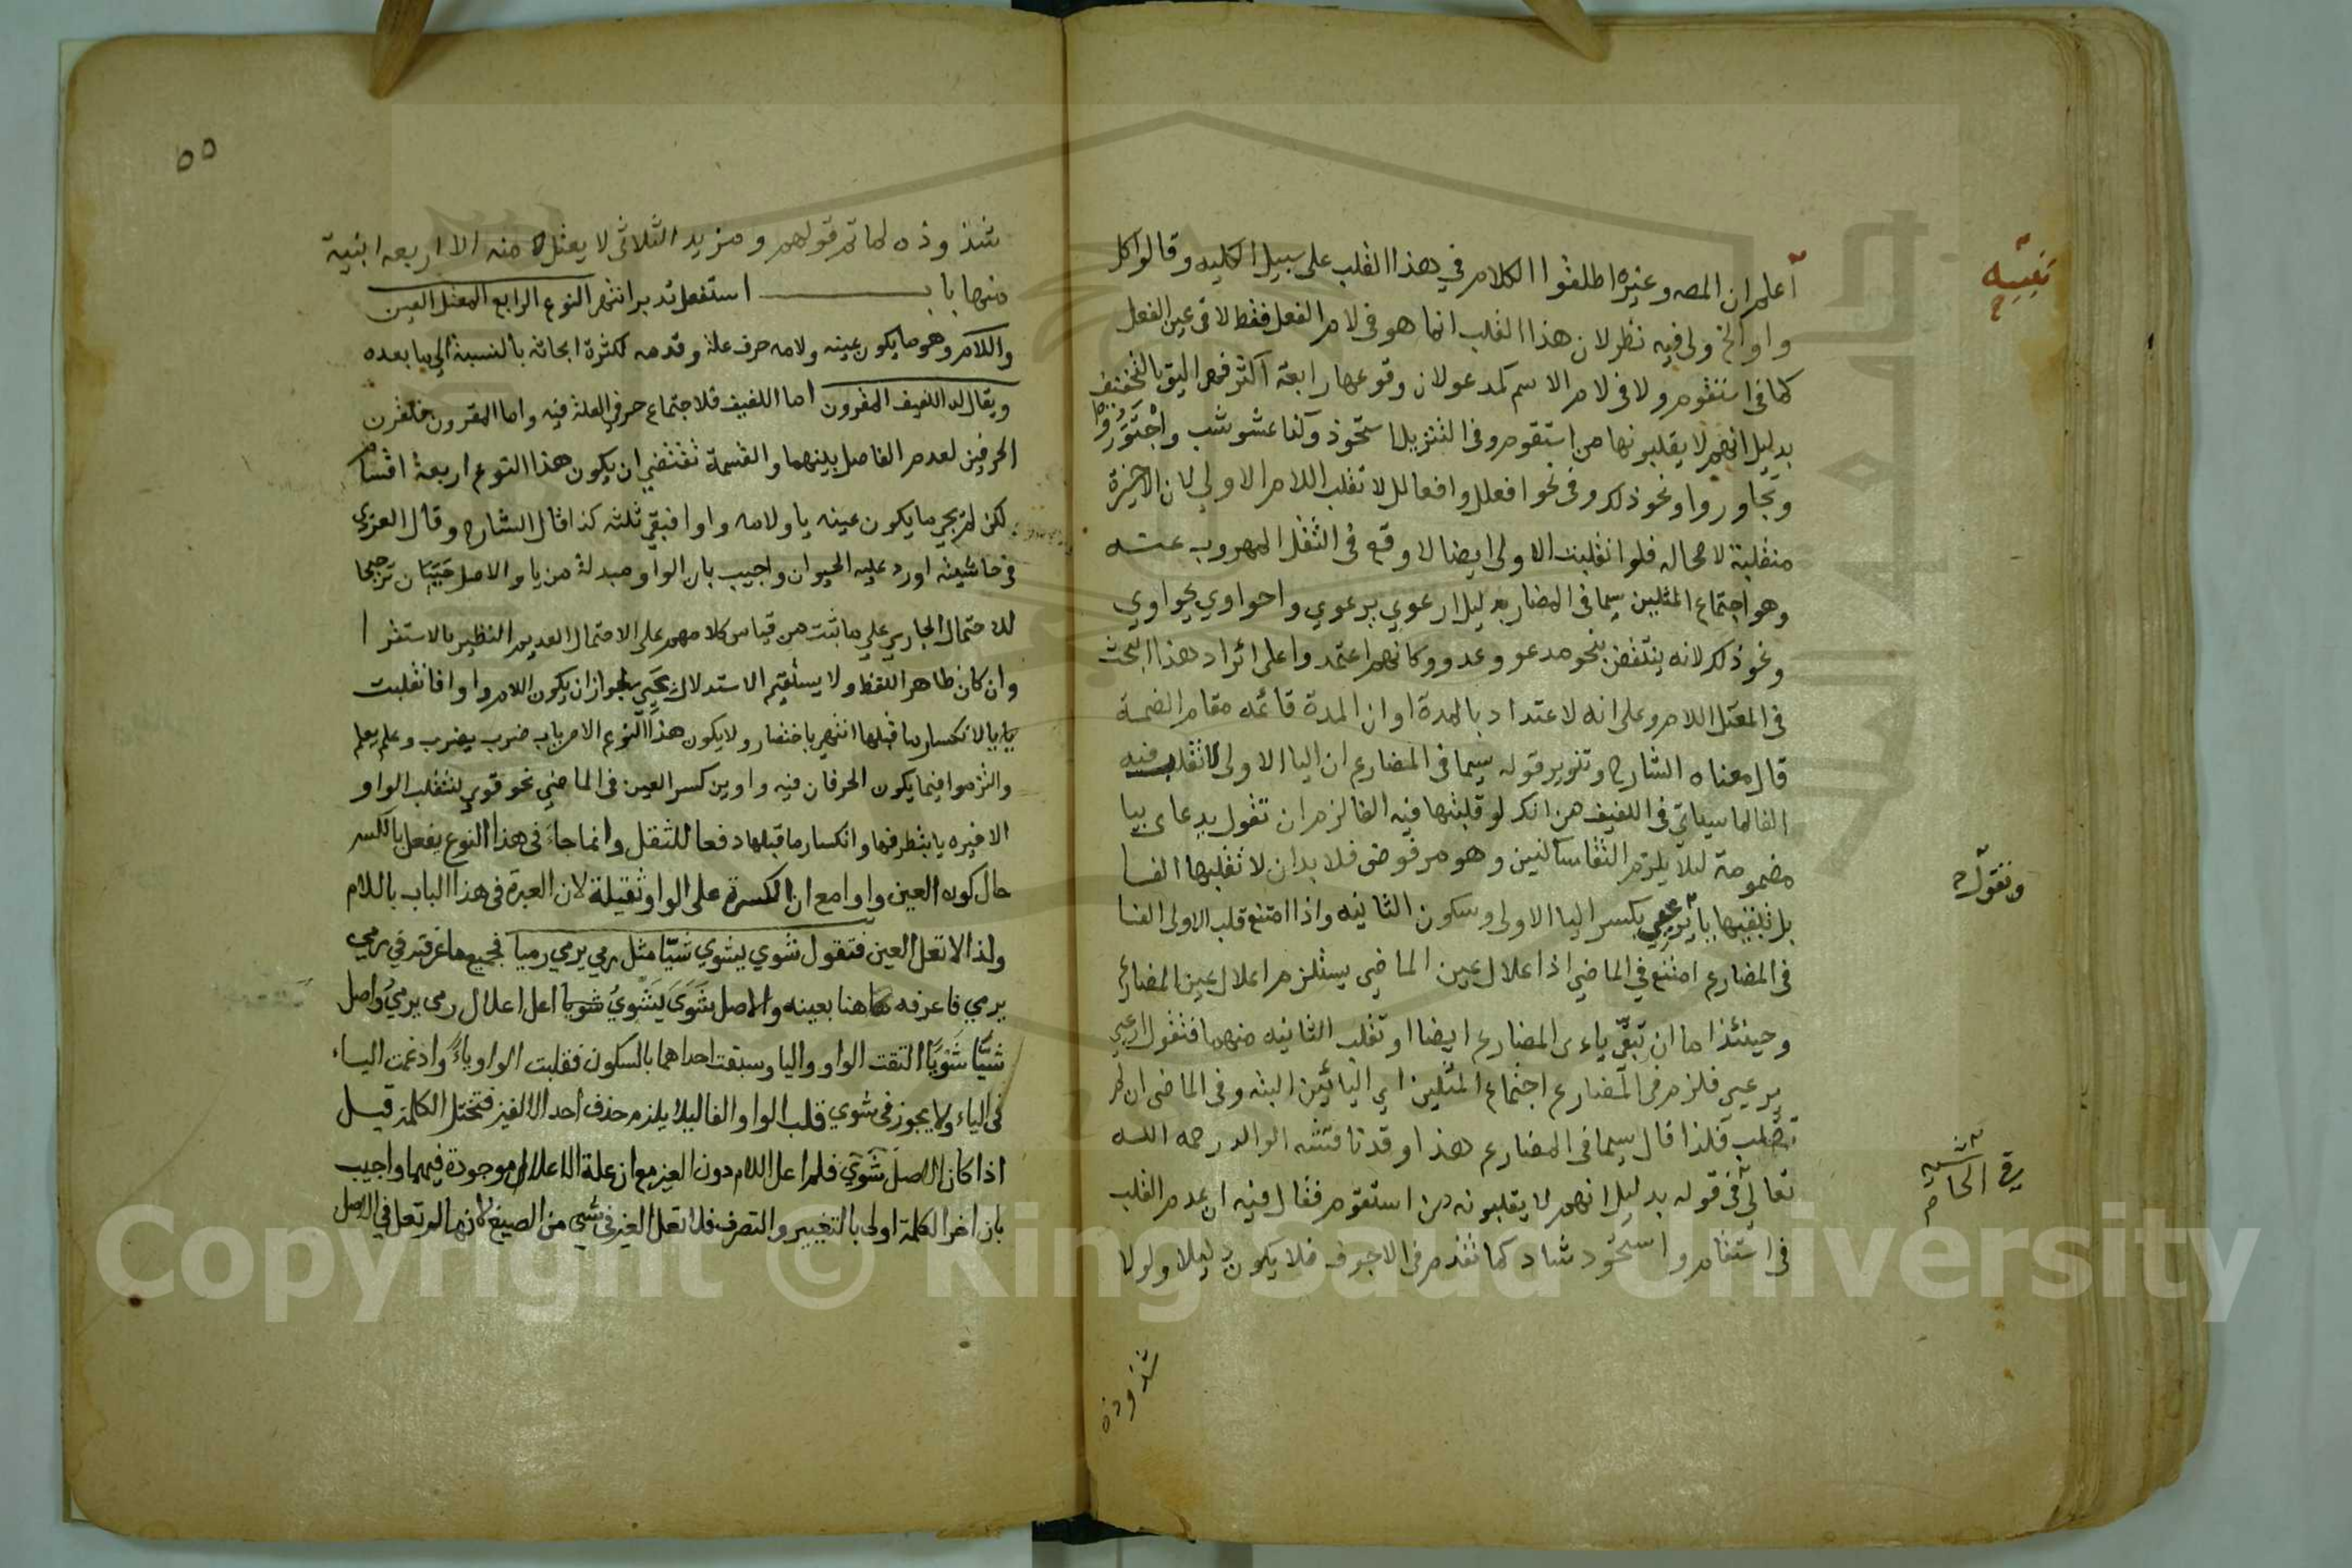 تنبيه
اعلم ان المصه وغيره اطلقوا الكلام في هذا القلب على سبيل الكليه وقالوا كل
واو الخ ولي فيه نظر لان هذا القلب انما هو فى لام الفعل فقط لا فى عين الفعل
كما فى استقوم ولا فى لام الاسم كمدعو لان وقوعها رابعة اكثر فهم اليق بالتخفيف
بدليل انهم لا يقلبونها من استقوم وفى التنزيل استحوذ وكذا عشوشب واجتوروا
وتجاوروا ونحو ذلك وفى نحو افعلل وافعالل لا تقلب اللام الاولى لان الاخيرة
منقلبة لا محاله فلو انقلبت الاولى ايضا لا وقع فى الثقل المهروب عنه
وهو اجتماع المثلين سيما فى المضارع بدليل ارعوي يرعوي واحواوي يحواوي
ونحو ذلك لانه ينتقض بنحو مدعو وعدو وكانهم اعتمدوا على ايراد هذا البحث
فى المعتل اللام وعلى انه لا عتداد بالمدة او ان المدة قائمه مقام الضمة
قال معناه الشارح وتنوير قوله سيما فى المضارع ان اليا الاولى لا تقلب فيه
الفا لما سياتي فى اللفيف من انك لو قلبتها فيه الفا لزم ان تقول يدعاى بيا
مضمومة ليلا يلزم التقا ساكنين وهو مرفوض فلا بد ان لا تقلبها الفا
ونقول
بل تبقيها يا يرعيي بكسر اليا الاولى وسكون الثانيه واذا امتنع قلب الاولى الفا
فى المضارع امتنع في الماضي اذ اعلال عين الماضي يستلزم اعلال عين المضارع
وحينئذ اما ان تبقى ياءى المضارع ايضا او تقلب الثانيه منهما فتقول ارعيي
يرعيي فلزم فى المضارع اجتماع المثلين اي اليائين البته وفى الماضى ان لم
تقلب فلذا قال سيما فى المضارع هذا وقد ناقشه الوالد رحمه الله
تعالى فى قوله بدليل انهم لا يقلبونه من استقوم فقال فيه ان عدم القلب
فى استقام واستحوذ شاذ كما تقدم فى الاجوف فلا يكون دليلا ولولا
شذوذه
٥٥
شذوذه لما تم قولهم ومزيد الثلاثى لا يعتل منه الا اربعه ابنية
منها باب استفعل تدبر انتهر النوع الرابع المعتل العين
واللام وهو ما يكون عينه ولامه حرف علة وقدمه لكثرة ابحاثه بالنسبة الي ما بعده
ويقال له اللفيف المقرون اما اللفيف فلاجتماع حرفي العلة فيه واما المقرون فلقرن
الحرفين لعدم الفاصل بينهما والقسمة تقتضي ان يكون هذا النوع اربعة اقسام
لكن لم يجى ما يكون عينه يا ولامه واوا فبقي ثلثه كذا قال الشارح وقال العزي
فى حاشيته اورد عليه الحيوان واجيب بان الواو مبدلة من يا والاصل حييان ترجيحا
للاحتمال الجاري علي ما ثبت من قياس كلامهم على الاحتمال العديم النظير بالاستقرا
وان كان ظاهر اللفظ ولا يستقيم الاستدلال بحيي لجواز ان يكون اللام واوا فانقلبت
يا بالانكسار ما قبلها انتهر باختصار ولا يكون هذا النوع الا من باب ضرب يضرب وعلم يعلم
والتزموا فيما يكون الحرفان فيه واوين كسر العين فى الماضي نحو قوي لتنقلب الواو
الاخيره يا بتطرفها وانكسار ما قبلها دفعا للثقل وانما جاء فى هذا النوع يفعل بالكسر
حال كون العين واوا مع ان الكسرة على الواو ثقيلة لان العبرة فى هذا الباب باللام
ولذا لا تعل العين فتقول شوي يشوي شيّا مثل رمي يرمي رميا فجميع ما عرفته في رمي
يرمي فاعرفه هاهنا بعينه والاصل شَوَيَ يَشْوِيُ شويا اعل اعلال رمى يرمي واصل
شيّا شَوْيًا التقت الواو واليا وسبقت احداهما بالسكون فقلبت الواو ياءً وادغمت الياء
فى الياء ولا يجوز فى شوي قلب الواو الفا ليلا يلزم حذف احد الالفين فتختل الكلمة قيل
اذا كان الاصل شَوَيَ فلم اعل اللام دون العين مع ان علة الاعلال موجودة فيهما واجيب
بان اخر الكلمة اولى بالتغيير والتصرف فلا تعل العين فى شى من الصيغ لانها لم تعل في الاصل